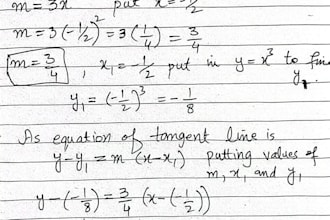 m = 3x² put x = -1/2
m = 3(-1/2)² = 3(1/4) = 3/4
m = 3/4 , x₁ = -1/2 put in y = x³ to find y₁.
y₁ = (-1/2)³ = -1/8
As equation of tangent line is
y - y₁ = m (x - x₁) putting values of
m, x₁ and y₁
y - (-1/8) = 3/4 (x - (-1/2))